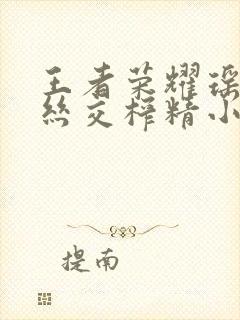 王者荣耀瑶
丝交榨精小
提南